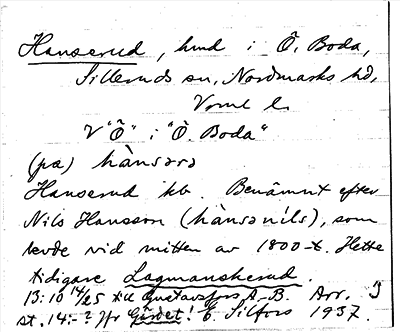 Hanserud, hmd i Ö. Boda,
Silleruds sn, Nordmarks hd,
Värml. l.
V "Ö" i "Ö. Boda"
(pa) hànsərə
Hanserud kb. Benämnt efter
Nils Hansson (hànsəníls), som
levde vid mitten av 1800-t. Hette
tidigare Lagmanskerud.
13:10 14/25 till Gustavsfors A.-B. Arr.
st. 14:-? Jfr Gärdet! b. Silfors 1937.